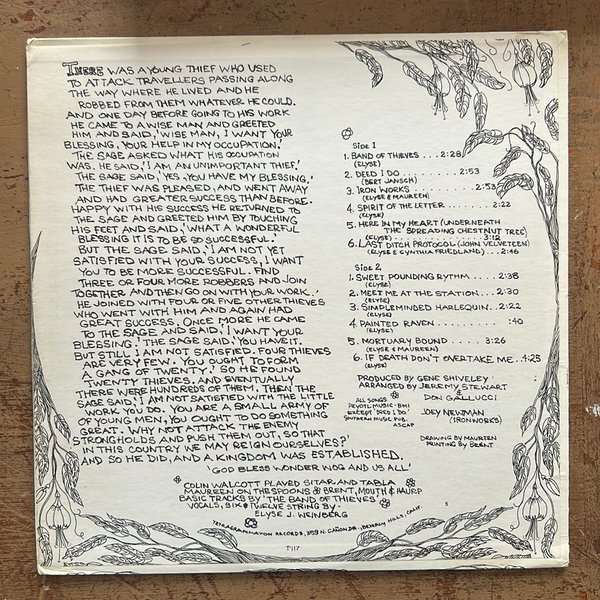 THERE WAS A YOUNG THIEF WHO USED
TO ATTACK TRAVELLERS PASSING ALONG
THE WAY WHERE HE LIVED AND HE
ROBBED FROM THEM WHATEVER HE COULD.
AND ONE DAY BEFORE GOING TO HIS WORK
HE CAME TO A WISE MAN AND GREETED
HIM AND SAID, 'WISE MAN, I WANT YOUR
BLESSING, YOUR HELP IN MY OCCUPATION.'
THE SAGE ASKED WHAT HIS OCCUPATION
WAS. HE SAID, 'I AM AN UNIMPORTANT THIEF.'
THE SAGE SAID, 'YES, YOU HAVE MY BLESSING.'
THE THIEF WAS PLEASED, AND WENT AWAY
AND HAD GREATER SUCCESS THAN BEFORE.
HAPPY WITH HIS SUCCESS HE RETURNED TO
THE SAGE AND GREETED HIM BY TOUCHING
HIS FEET AND SAID, 'WHAT A WONDERFUL
BLESSING IT IS TO BE SO SUCCESSFUL.'
BUT THE SAGE SAID, 'I AM NOT YET
SATISFIED WITH YOUR SUCCESS, I WANT
YOU TO BE MORE SUCCESSFUL. FIND
THREE OR FOUR MORE ROBBERS AND JOIN
TOGETHER AND THEN GO ON WITH YOUR WORK.'
HE JOINED WITH FOUR OR FIVE OTHER THIEVES
WHO WENT WITH HIM AND AGAIN HAD
GREAT SUCCESS. ONCE MORE HE CAME
TO THE SAGE AND SAID, 'I WANT YOUR
BLESSING.' THE SAGE SAID, 'YOU HAVE IT.
BUT STILL I AM NOT SATISFIED. FOUR THIEVES
ARE VERY FEW. YOU OUGHT TO FORM
A GANG OF TWENTY.' SO HE FOUND
TWENTY THIEVES, AND EVENTUALLY
THERE WERE HUNDREDS OF THEM. THEN THE
SAGE SAID, 'I AM NOT SATISFIED WITH THE LITTLE
WORK YOU DO. YOU ARE A SMALL ARMY OF
OF YOUNG MEN, YOU OUGHT TO DO SOMETHING
GREAT. WHY NOT ATTACK THE ENEMY
STRONGHOLDS AND PUSH THEM OUT, SO THAT
IN THIS COUNTRY WE MAY REIGN OURSELVES?'
AND SO HE DID, AND A KINGDOM WAS ESTABLISHED.
'GOD BLESS WONDER WOG AND US ALL'
COLIN WALCOTT PLAYED SITAR AND TABLA
MAUREEN ON THE SPOONS & BRENT, MOUTH & HAURP
BASIC TRACKS BY 'THE BAND OF THIEVES'
VOCALS, SIX & TWELVE STRING BY-
ELYSE J. WEINBERG
TETRAGRAMMATON RECORDS, 359 N. CAÑON DR., BEVERLY HILLS, CALIF.
T-117
Side 1
1. BAND OF THIEVES . . . 2:28
(ELYSE)
2. DEED I DO . . . . . . 2:53
(BERT JANSCH)
3. IRON WORKS . . . . . . 2:53
(ELYSE & MAUREEN)
4. SPIRIT OF THE LETTER . . . . . 2:22
(ELYSE)
5. HERE IN MY HEART (UNDERNEATH
THE SPREADING CHESTNUT TREE)
(ELYSE) . . . . . . . . 3:12
6. LAST DITCH PROTOCOL (JOHN VELVETEEN)
(ELYSE & CYNTHIA FRIEDLAND) . . . . 2:46
Side 2
1. SWEET POUNDING RYTHM . . . . 2:38
(ELYSE)
2. MEET ME AT THE STATION . . . 2:30
(ELYSE)
3. SIMPLEMINDED HARLEQUIN . . . 2:22
(ELYSE)
4. PAINTED RAVEN . . . . . . . :40
(ELYSE)
5. MORTUARY BOUND . . . . 3:26
(ELYSE & MAUREEN)
6. IF DEATH DON'T OVERTAKE ME . 4:25
(ELYSE)
PRODUCED BY GENE SHIVELEY
ARRANGED BY JEREMY STEWART
& DON GALLUCCI
JOEY NEWMAN
(IRONWORKS)
ALL SONGS
MUSIC - BMI
EXCEPT DEED I DO
SOUTHERN MUSIC PUB.
ASCAP
DRAWING BY MAUREEN
PRINTING BY BRENT